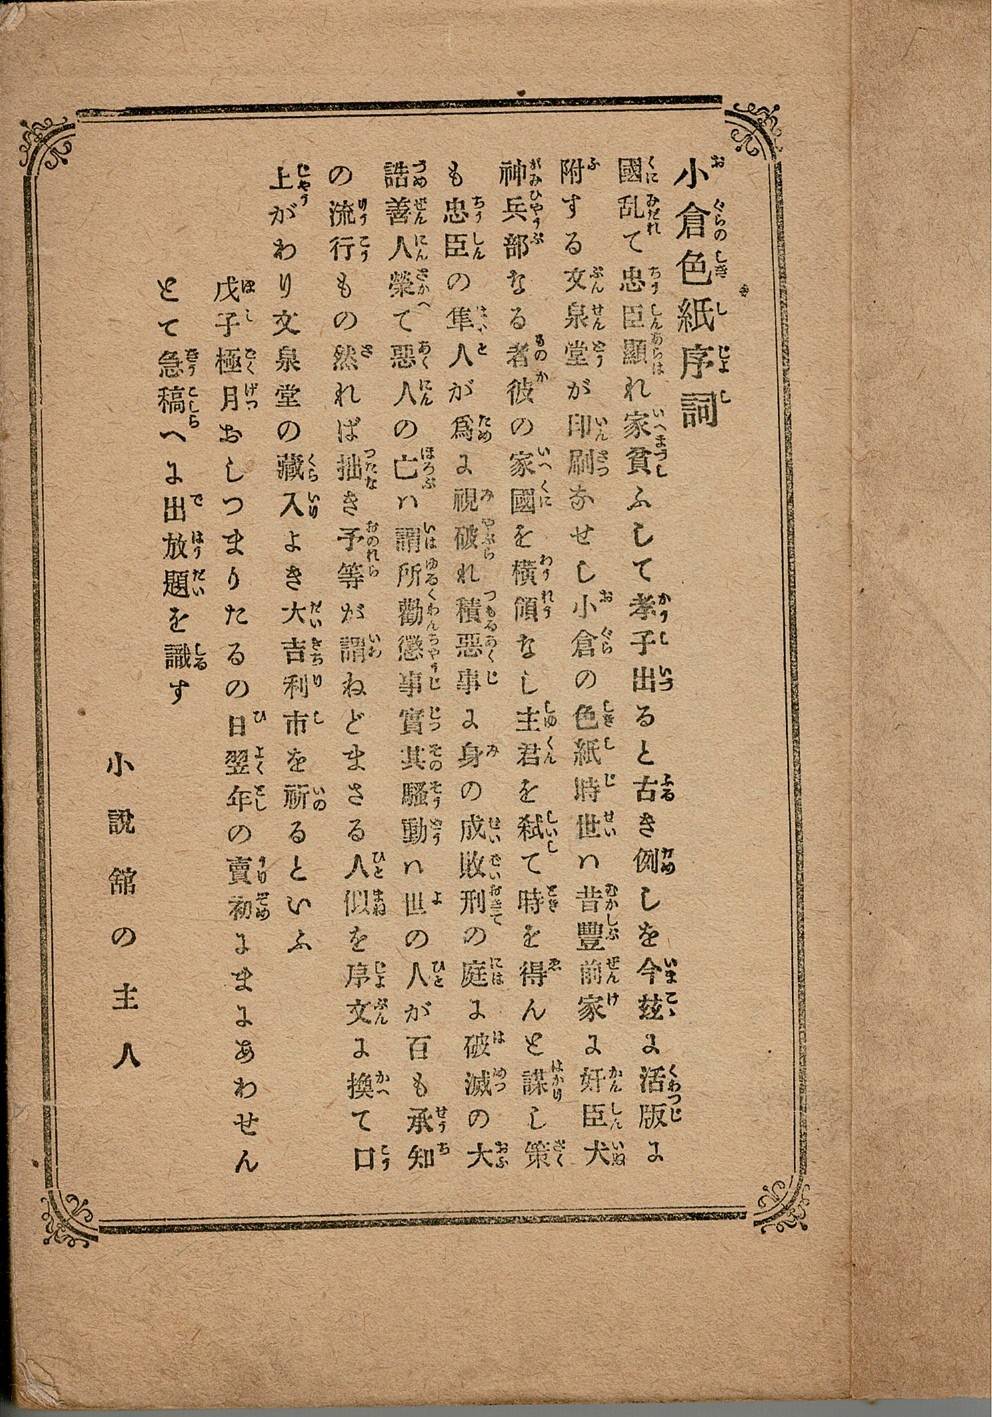 小倉色紙序詞
國乱て忠臣顯れ家貧ふして孝子出ると古き例しを今玆に活版に
附する文泉堂が印刷なせし小倉の色紙時世ハ昔豐前家に奸臣犬
神兵部なる者彼の家國を横領なし主君を弑て時を得んと謀し策
も忠臣の隼人が爲に視破れ積惡事に身の成敗刑の庭に破滅の大
詰善人榮て惡人の亡ハ謂所勸懲事實其騷動ハ世の人が百も承知
の流行もの然れば拙き予等が謂ねどまさる人似を序文に換て口
上がわり文泉堂の藏入よき大吉利市を祈るといふ
戊子極月おしつまりたるの日翌年の賣初にまにあわせん
とて急稿へに出放題を識す
小說舘の主人